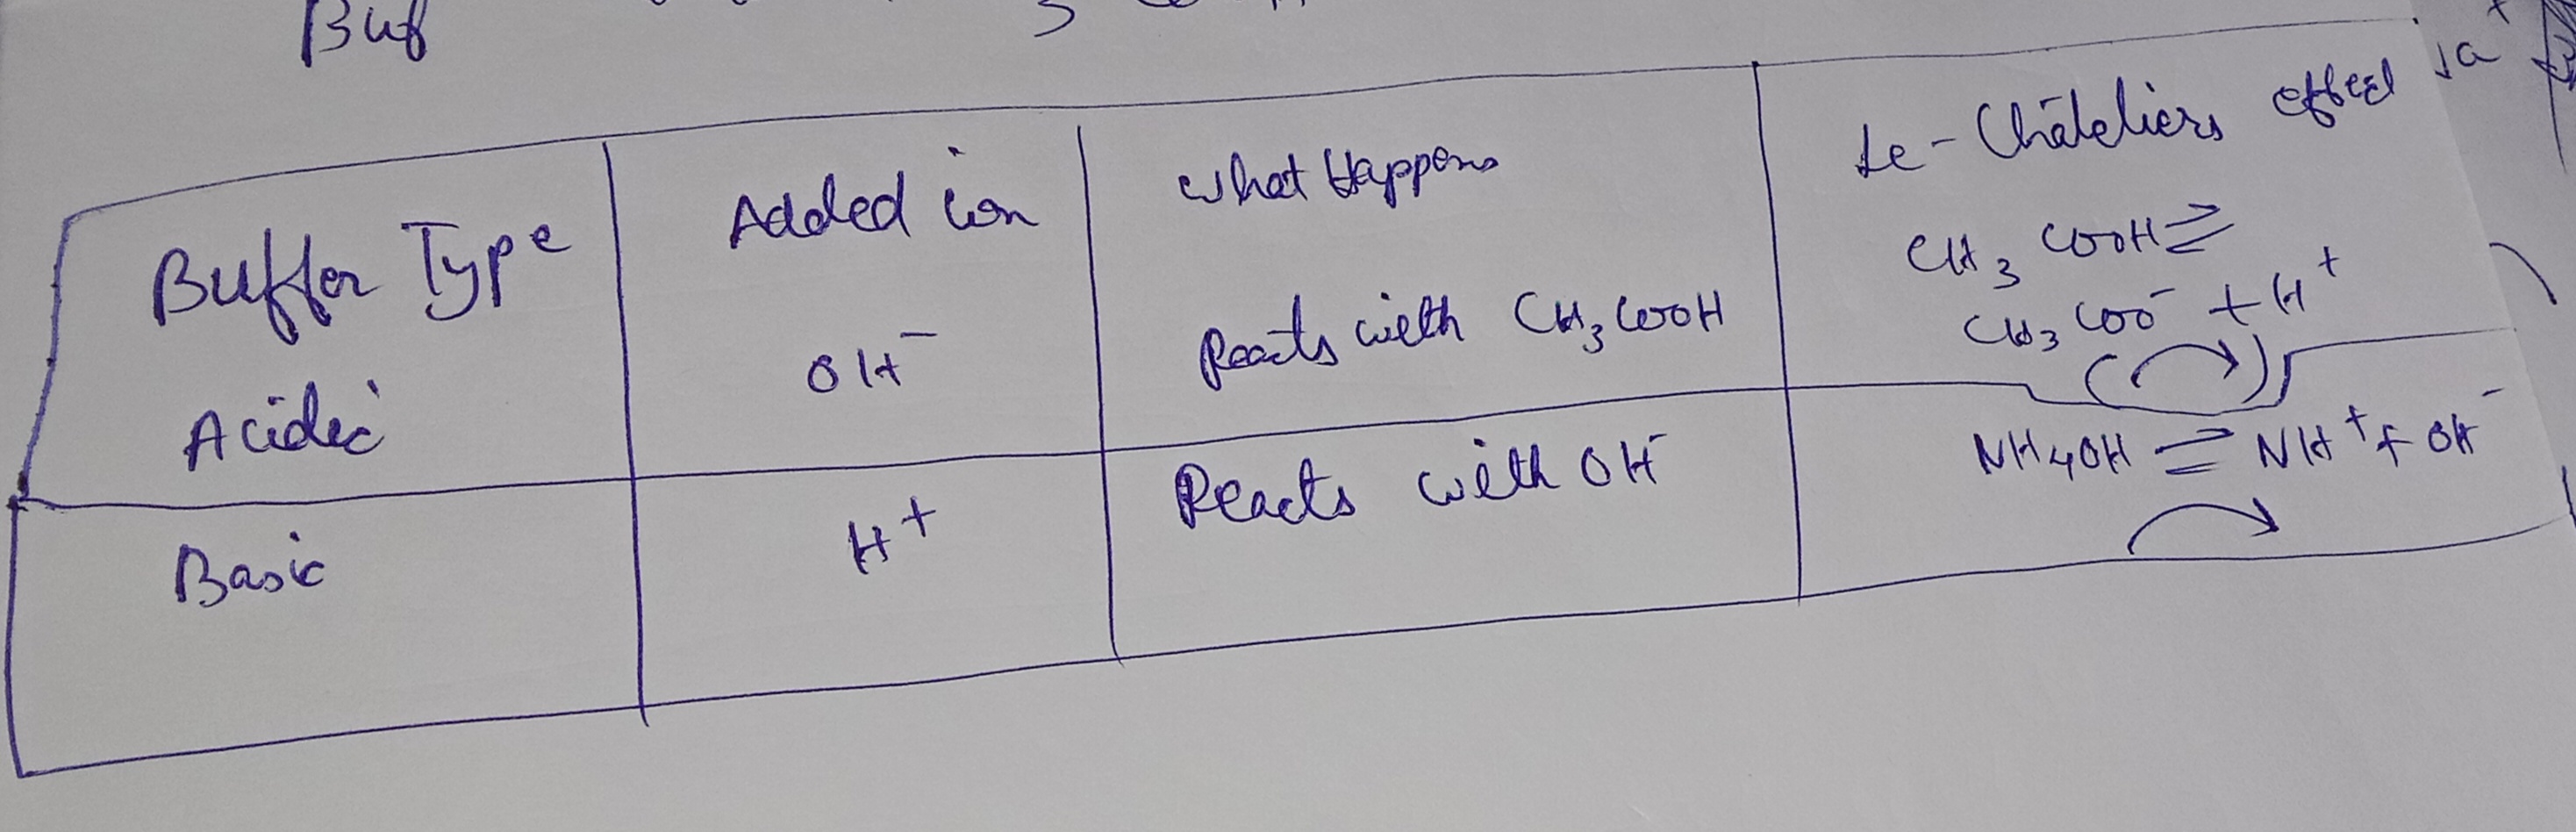 Buf
Buffer Type
Added ion
What Happens
Le-Châteliers effect
Acidic
OH⁻
Reacts with CH₃COOH
CH₃COOH ⇌
CH₃COO⁻ + H⁺
Basic
H⁺
Reacts with OH⁻
NH₄OH ⇌ NH⁺ + OH⁻